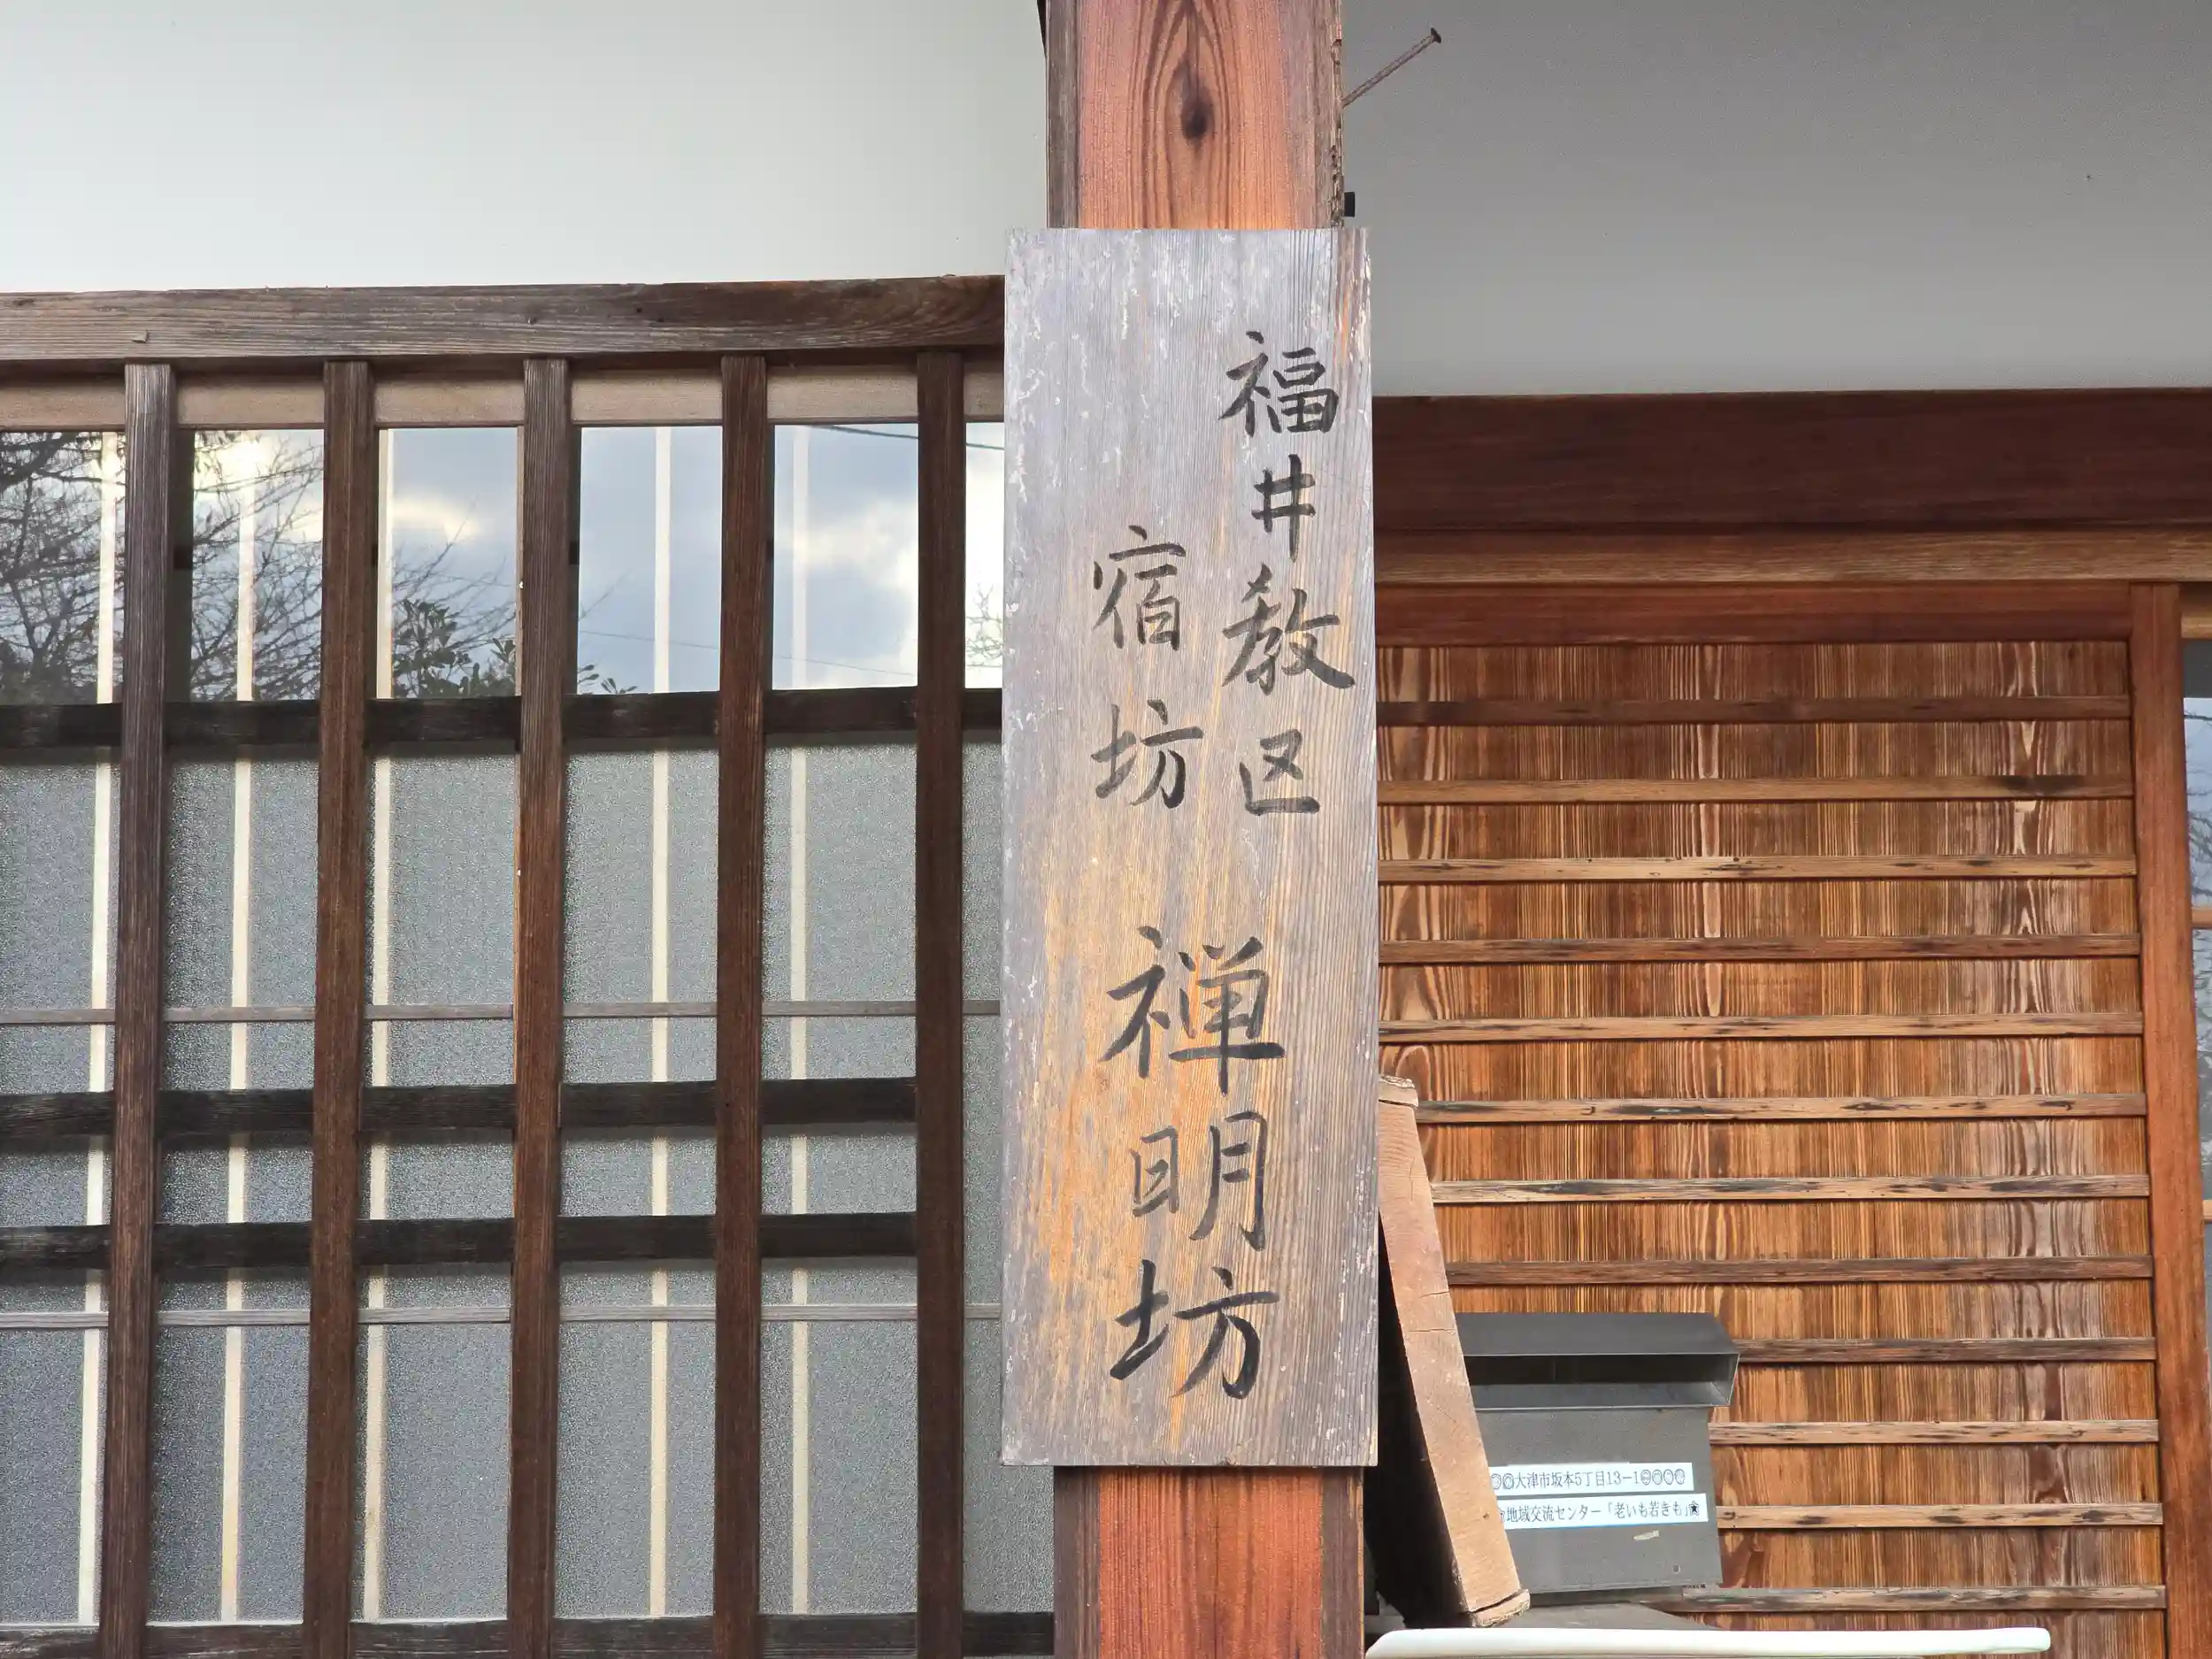 福井教区
宿坊
禅明坊
大津市坂本5丁目13-1
地域交流センター「老いも若きも」